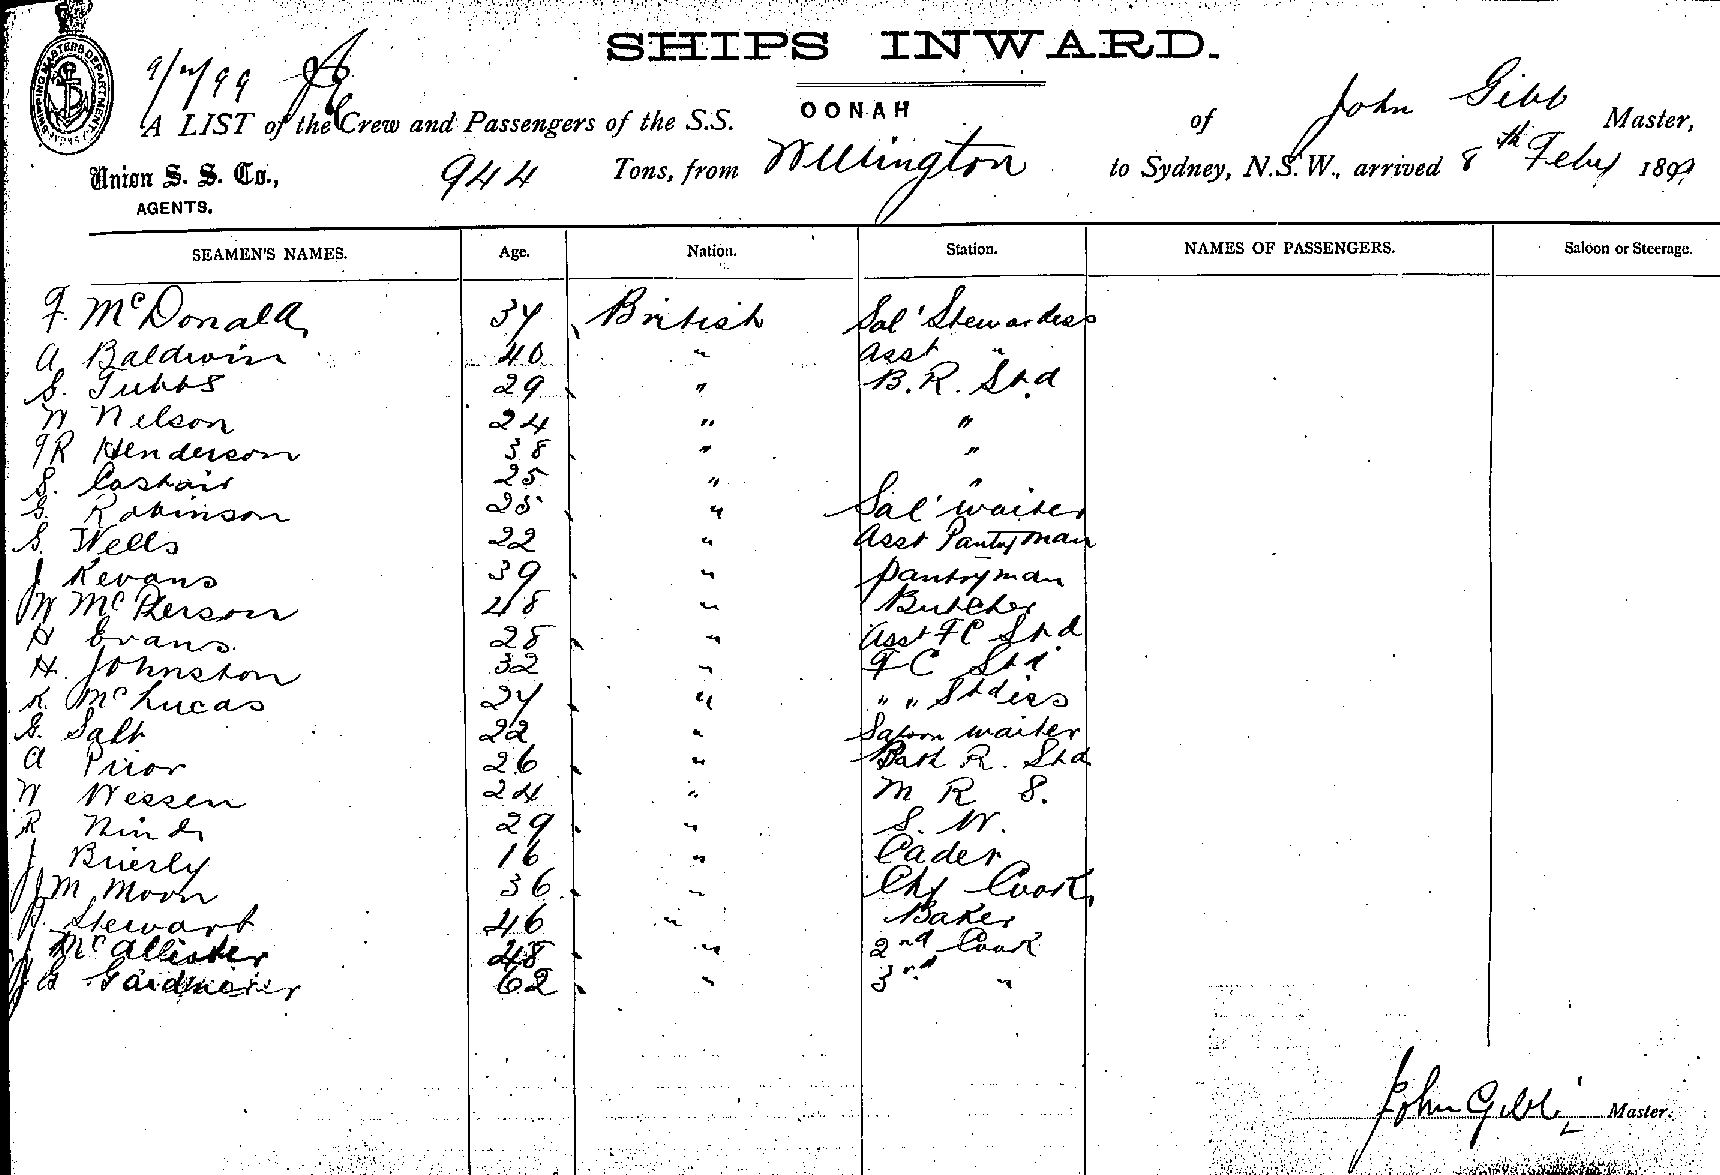 SHIPS INWARD.
9/2/99
A LIST of the Crew and Passengers of the S.S. OONAH of John Gibb Master,
Union S. S. Co., AGENTS. 944 Tons, from Wellington to Sydney, N.S.W., arrived 8th Feby 1899
SEAMEN'S NAMES. Age. Nation. Station. NAMES OF PASSENGERS. Saloon or Steerage.
F. McDonald 37 British Sal' Stewardess
A Baldwin 40 " Asst "
S. Tubbs 29 " B. R. Std
W Nelson 24 " "
R Henderson 38 " "
S. Castair 25 " "
G. Robinson 25 " Sal' waiter
S. Wells 22 " Asst Pantryman
J Kevans 39 " Pantryman
W McPherson 48 " Butcher
H Evans 28 " Asst FC Std
H. Johnston 32 " FC Std
K McLucas 27 " " " Stdess
G. Salt 22 " Saloon waiter
A Prior 26 " Bath R. Std
W Wessen 24 " M R S.
R Hind 29 " S. W.
J Brierly 16 " Cader
J M Moon 36 " Chf Cook
Stewart 46 " Baker
J McAllister 48 " 2nd Cook
G Gardnerer 62 " 3rd "
John Gibb Master.